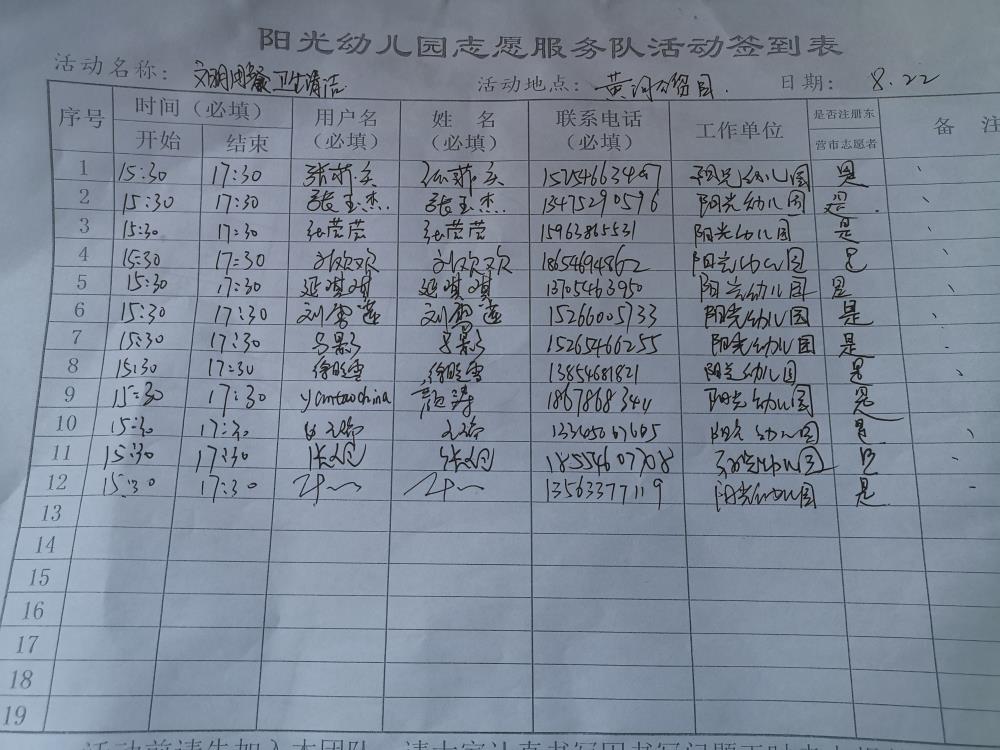 阳光幼儿园志愿服务队活动签到表
活动名称: 文明用餐卫生清洁 活动地点: 黄河公园. 日期: 8.22
序号 时间（必填） 用户名（必填） 姓 名（必填） 联系电话（必填） 工作单位 是否注册东营市志愿者 备 注
开始 结束
1 15:30 17:30 阳光幼儿园 是
2 15:30 17:30 张玉杰. 张玉杰. 13475290596 阳光幼儿园 是.
3 15:30 17:30 张莹莹 张莹莹 15963865531 阳光幼儿园 是
4 15:30 17:30 刘欢欢 刘欢欢 18654694862 阳光幼儿园 是
5 15:30 17:30 延琪琪 延琪琪 13705463950 阳光幼儿园 是
6 15:30 17:30 刘雪莲 刘雪莲 15266005733 阳光幼儿园 是
7 15:30 17:30 马影 马影 15265466255 阳光幼儿园 是
8 15:30 17:30 徐晓雪 徐晓雪 13854681821 阳光幼儿园 是
9 15:30 17:30 yantaochina 颜涛 阳光幼儿园 是
10 15:30 17:30 阳光幼儿园 是
11 15:30 17:30 18554607708 阳光幼儿园 是
12 15:30 17:30 13563377119 阳光幼儿园 是
13
14
15
16
17
18
19